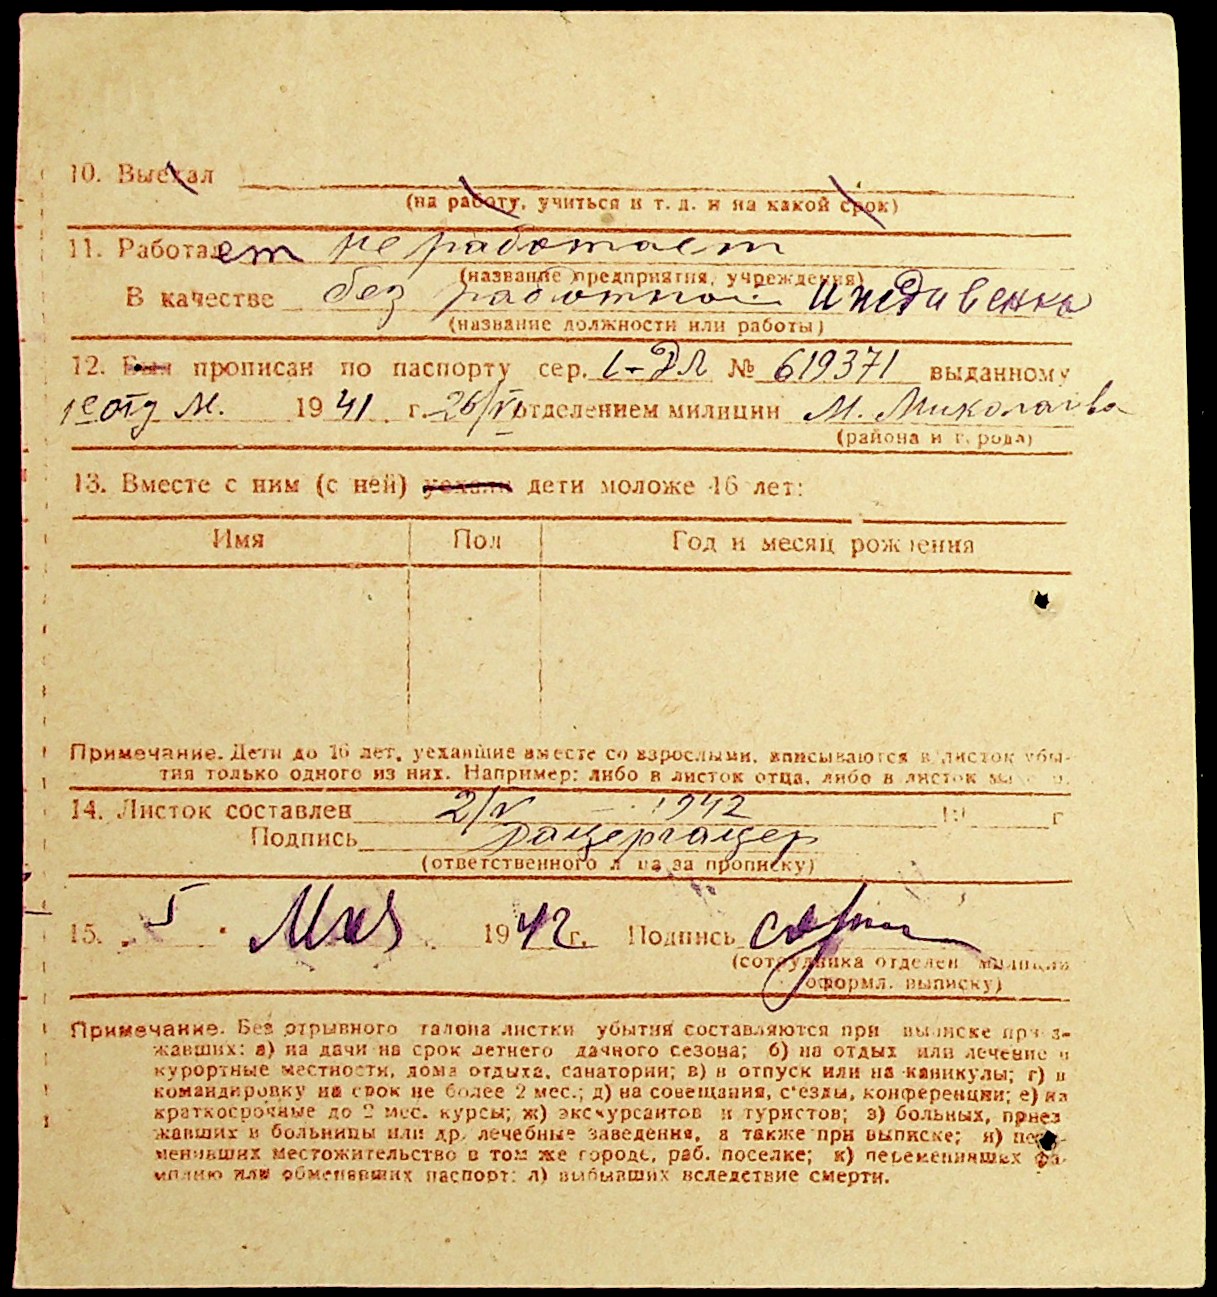 10. Выехал
(на работу, учиться и т. д. и на какой срок)
11. Работает не работает
(название предприятия, учреждения)
В качестве без работной Иждивенка
(название должности или работы)
12. Был прописан по паспорту сер. № 619371 выданному
1941 г. 26/VI отделением милиции М. Миколаева
(района и города)
13. Вместе с ним (с ней) уехали дети моложе 16 лет:
Имя Пол Год и месяц рождения
Примечание. Дети до 16 лет, уехавшие вместе со взрослыми, вписываются в листок убы-
тия только одного из них. Например: либо в листок отца, либо в листок
14. Листок составлен 2/V - 1942 19 г
Подпись
(ответственного лица за прописку)
15. 5 Мая 1942 г. Подпись
(сотрудника отделен милиции
оформл. выписку)
Примечание. Без отрывного талона листки убытия составляются при выписке приез-
жавших: а) на дачи на срок летнего дачного сезона; б) на отдых или лечение в
курортные местности, дома отдыха, санатории; в) в отпуск или на каникулы; г) в
командировку на срок не более 2 мес.; д) на совещания, с'езды, конференции; е) на
краткосрочные до 2 мес. курсы; ж) экскурсантов и туристов; з) больных, приез
жавших в больницы или др. лечебные заведения, а также при выписке; и) пере-
менивших местожительство в том же городе, раб. поселке; к) переменивших фа-
милию или обменявших паспорт; л) выбывших вследствие смерти.